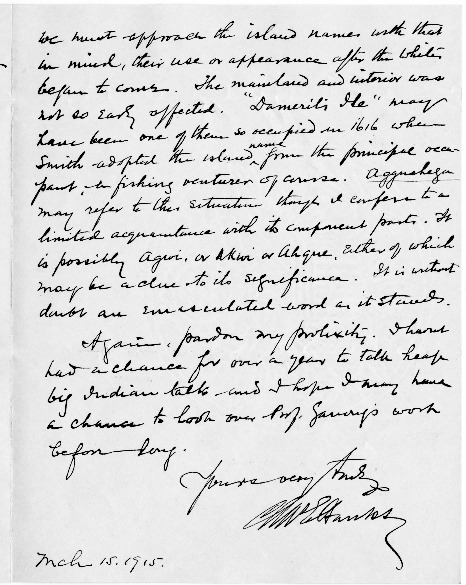 we must approach the island names with that
in mind, their use or appearance after the whites
began to come. The mainland and interior was
not so early affected. "Damerils Ile" may
have been one of them so occupied in 1616 when
Smith adopted the island name from the principal occu-
pant, a fishing venturer of course. Aggnahega
may refer to this situation though I confess to a
limited acquaintance with its component parts. It
is possibly Agwi, or Akwi or Ahque, either of which
may be a clue to its significance. It is without
doubt an emasculated word as it stands.
Again, pardon my prolixity. I havnt
had a chance for over a year to talk heap
big Indian talk and I hope I may have
a chance to look over Prof. Ganong's work
before long.
Yours very truly
Banks
Mch 15. 1915.